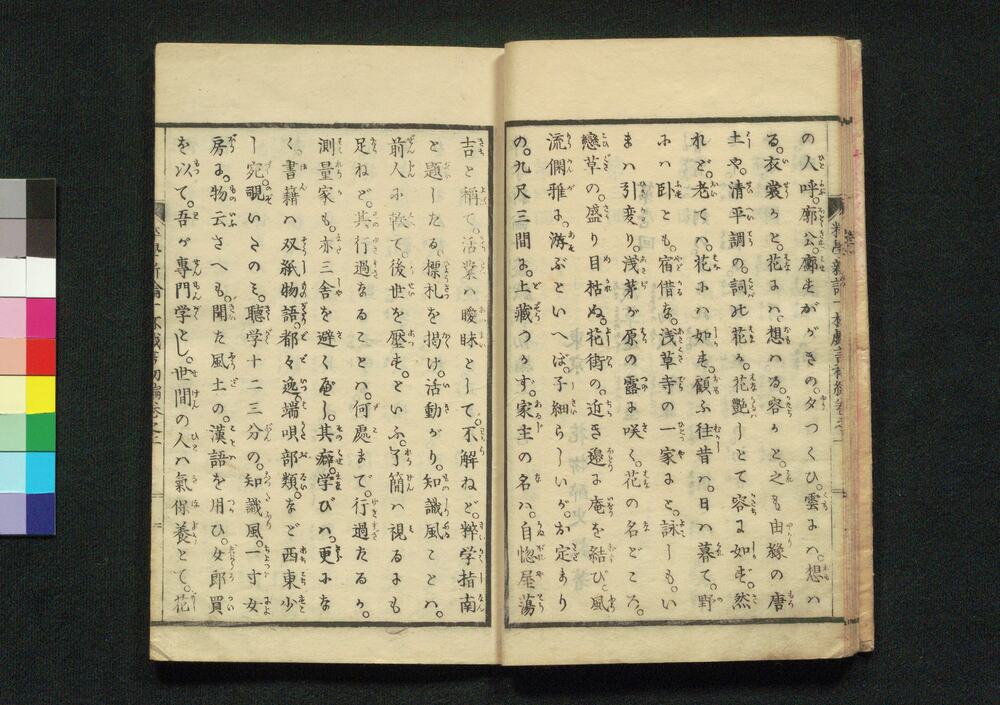 の人呼。廓公。廓もがゞきの。夕つくひ。雲にハ。想ハ
る。衣裳かと。花にハ。想ハる。容かと。之も由緣の唐
土や。清平調の。詞れ花か。花艷しとて容に如も。然
れど。老てハ。花にハ如も。顧ふ往昔ハ。日ハ暮て。野
にハ卧とも。宿借な。浅草寺の一家よと。詠しも。い
まハ引変り。浅茅が原の露に咲く。花の名どころ。
戀草の。盛り目枯ぬ。花街の。近き邉に庵を結び。風
流倜雅に。游ぶといへば。子細らしいが。お定まり
の。九尺三間に。土藏つかず。家主の名ハ。自惚屋蕩
吉と稱て。活業ハ曖昧として。不解ねど。粹学指南
と題したる。標札を掲け。活動がり。知識風ことハ。
前人に轢て。後世を壓も。といふ。了簡ハ視るにも
足ねど。其行過なることハ。何處まで。行過たるか。
測量家も。亦三舎を避く可し。其癖。学びハ。更にな
く。書籍ハ双紙物語。都々逸。端唄部類。など西東少
し宛覗いたのミ。聽学十二三分の。知識風。一寸女
房に。物云さへも。開た風土の。漢語を用ひ。女郎買
を以て。吾が專門学とし。世間の人ハ氣保養とて。花